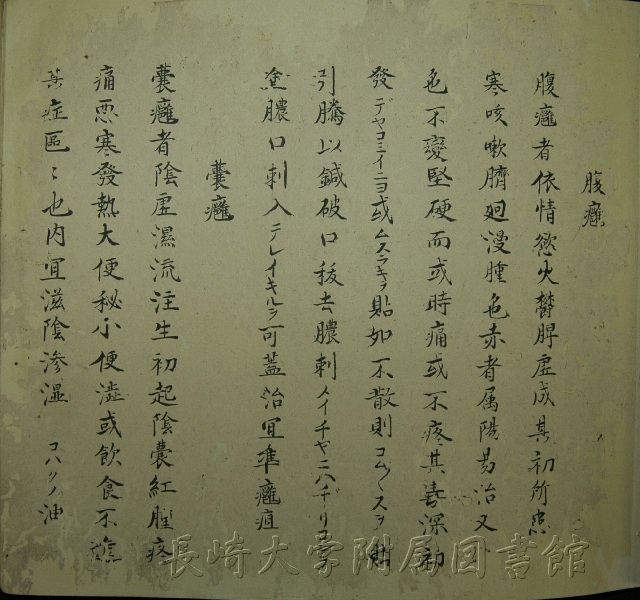 腹癰
腹癰者依情慾火鬱脾虚成其初所患
寒咳嗽臍廻漫腫色赤者属陽易治又
色不變堅硬而或時痛或不疼其毒深初
發デヤコミイニヨ或ムスラキヲ貼如不散則コム〱スヲ貼
引膿以鍼破口移去膿刺メイチヤニハデリ
塗膿口刺入テレイキルヲ可蓋治宜準癰疽
囊癰
囊癰者陰虚濕流注生初起陰囊紅腫疼
痛悪寒發熱大便秘小便澁或飲食不進
其症區〻也内宜滋陰渗湿 コハクノ油
長崎大学附属図書館